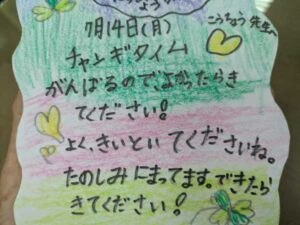 7月14日(月)
こうちょう先生へ
チャンギタイム
がんばるので、よかったらき
てください!
よく、きいといてくださいね。
たのしみにまってます。できたら
きてください!